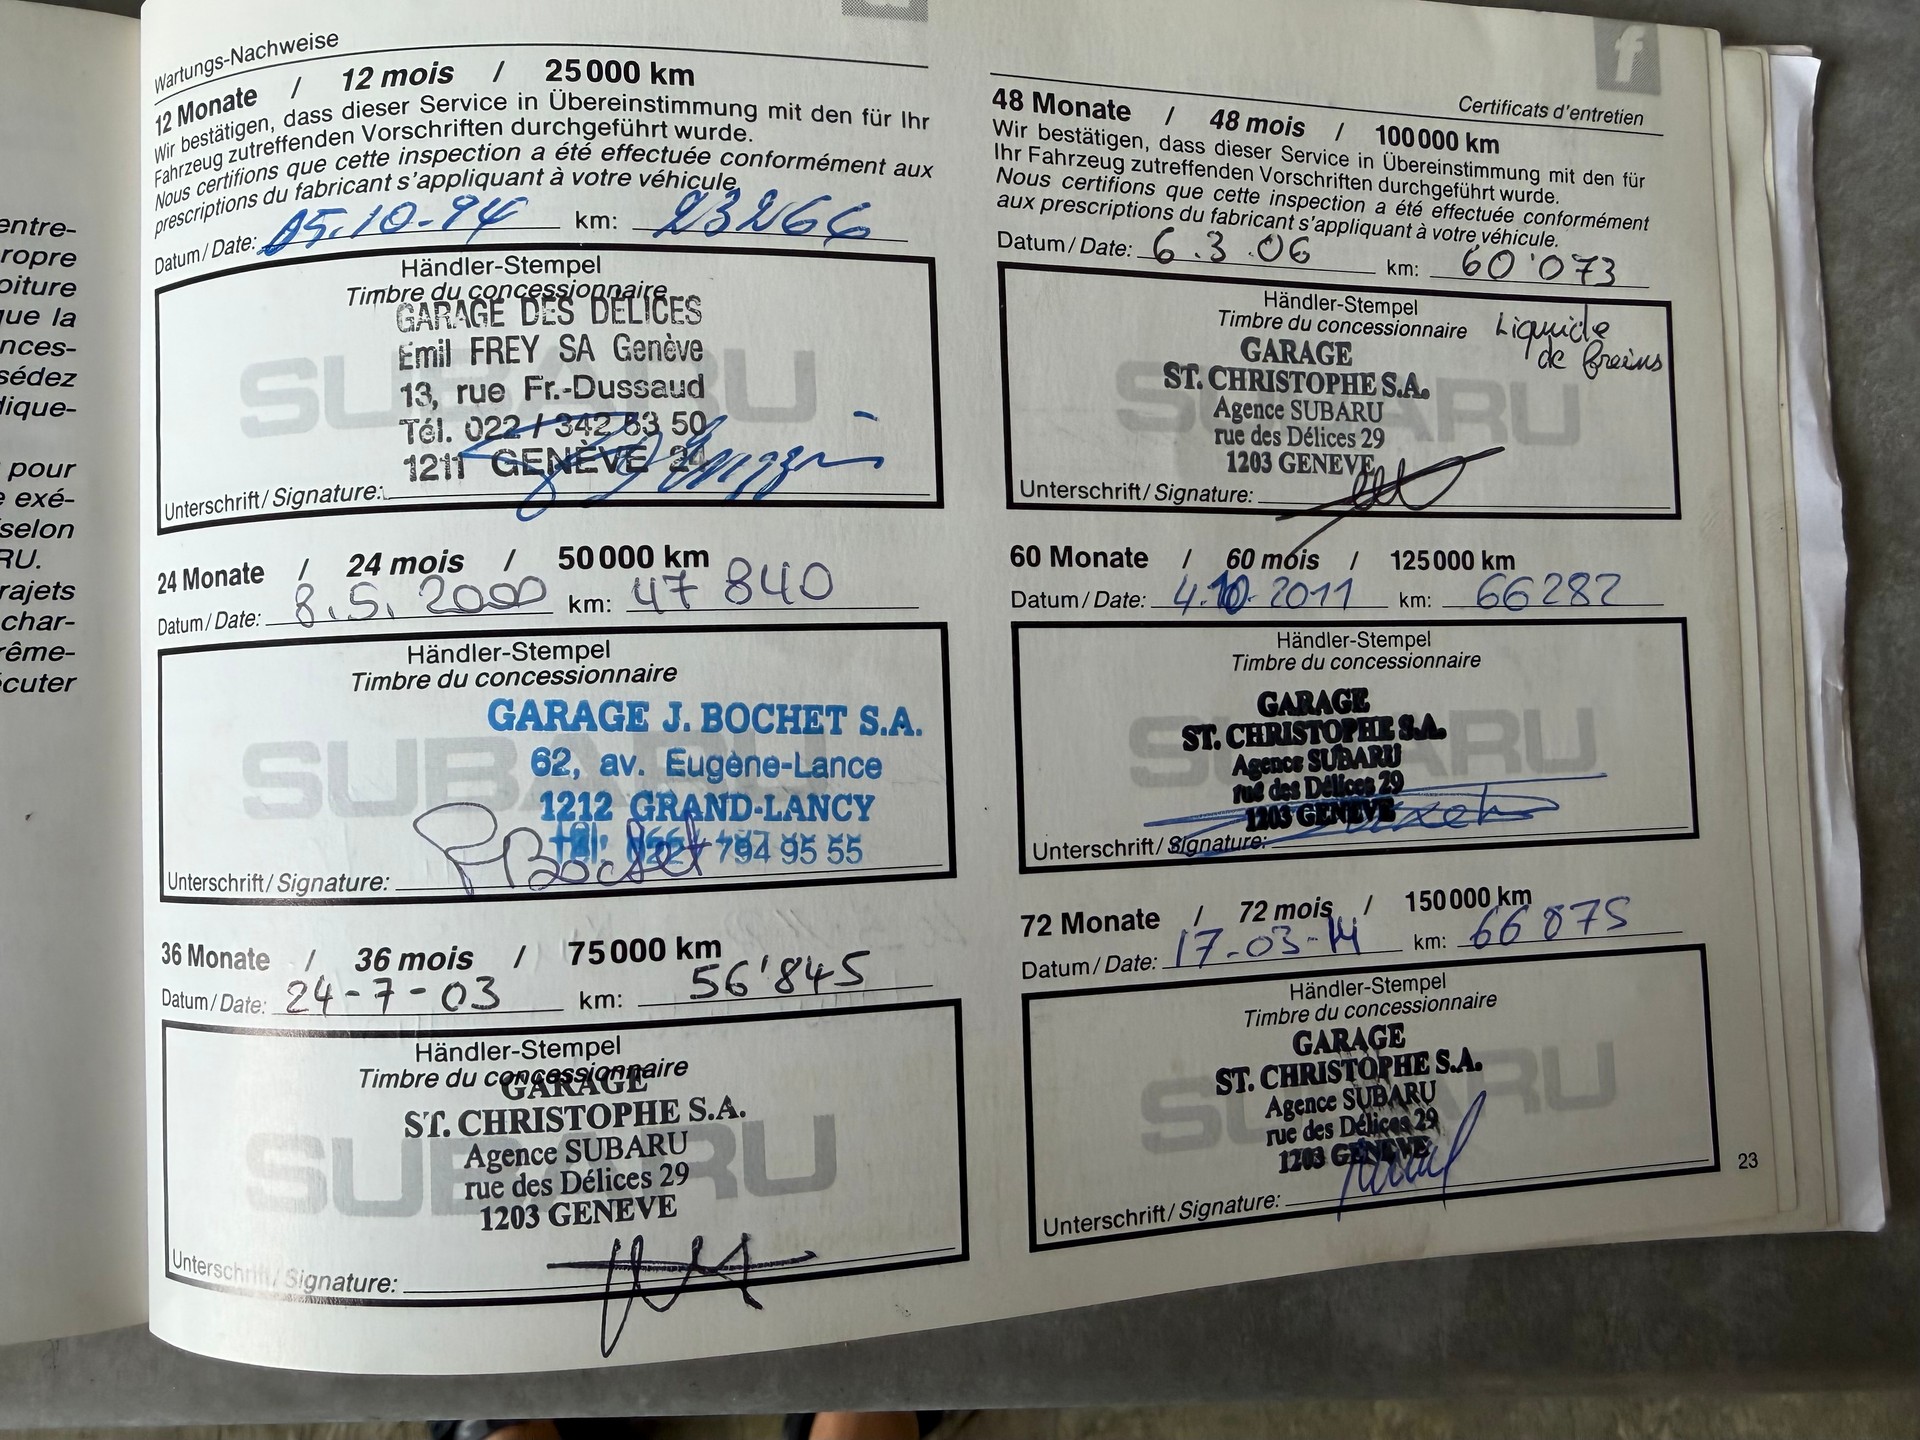 entre-
ropre
oiture
que la
nces-
sédez
dique-
pour
e exé-
selon
RU.
rajets
char-
rême-
écuter
Wartungs-Nachweise
12 Monate / 12 mois / 25 000 km
Wir bestätigen, dass dieser Service in Übereinstimmung mit den für Ihr
Fahrzeug zutreffenden Vorschriften durchgeführt wurde.
Nous certifions que cette inspection a été effectuée conformément aux
prescriptions du fabricant s'appliquant à votre véhicule.
Datum/Date: 05.10-94 km: 23266
Händler-Stempel
Timbre du concessionnaire
GARAGE DES DÉLICES
Emil FREY SA Genève
13, rue Fr.-Dussaud
Tél. 022 / 342 53 50
1211 GENÈVE 24
SUBARU
Unterschrift/Signature:
24 Monate / 24 mois / 50 000 km
Datum/Date: 8.5.2000 km: 47 840
Händler-Stempel
Timbre du concessionnaire
GARAGE J. BOCHET S.A.
62, av. Eugène-Lance
1212 GRAND-LANCY
Tél. 022 794 95 55
SUBARU
Unterschrift/Signature: Bochet
36 Monate / 36 mois / 75 000 km
Datum/Date: 24-7-03 km: 56'845
Händler-Stempel
Timbre du concessionnaire
GARAGE
ST. CHRISTOPHE S.A.
Agence SUBARU
rue des Délices 29
1203 GENEVE
SUBARU
Unterschrift/Signature:
f
Certificats d'entretien
48 Monate / 48 mois / 100 000 km
Wir bestätigen, dass dieser Service in Übereinstimmung mit den für
Ihr Fahrzeug zutreffenden Vorschriften durchgeführt wurde.
Nous certifions que cette inspection a été effectuée conformément
aux prescriptions du fabricant s'appliquant à votre véhicule.
Datum/Date: 6.3.06 km: 60'073
Händler-Stempel
Timbre du concessionnaire
Liquide
de freins
GARAGE
ST. CHRISTOPHE S.A.
Agence SUBARU
rue des Délices 29
1203 GENEVE
SUBARU
Unterschrift/Signature:
60 Monate / 60 mois / 125 000 km
Datum/Date: 4.10.2011 km: 66282
Händler-Stempel
Timbre du concessionnaire
GARAGE
ST. CHRISTOPHE S.A.
Agence SUBARU
rue des Délices 29
1203 GENEVE
SUBARU
Unterschrift/Signature:
72 Monate / 72 mois / 150 000 km
Datum/Date: 17-03-14 km: 66875
Händler-Stempel
Timbre du concessionnaire
GARAGE
ST. CHRISTOPHE S.A.
Agence SUBARU
rue des Délices 29
1203 GENEVE
SUBARU
Unterschrift/Signature:
23